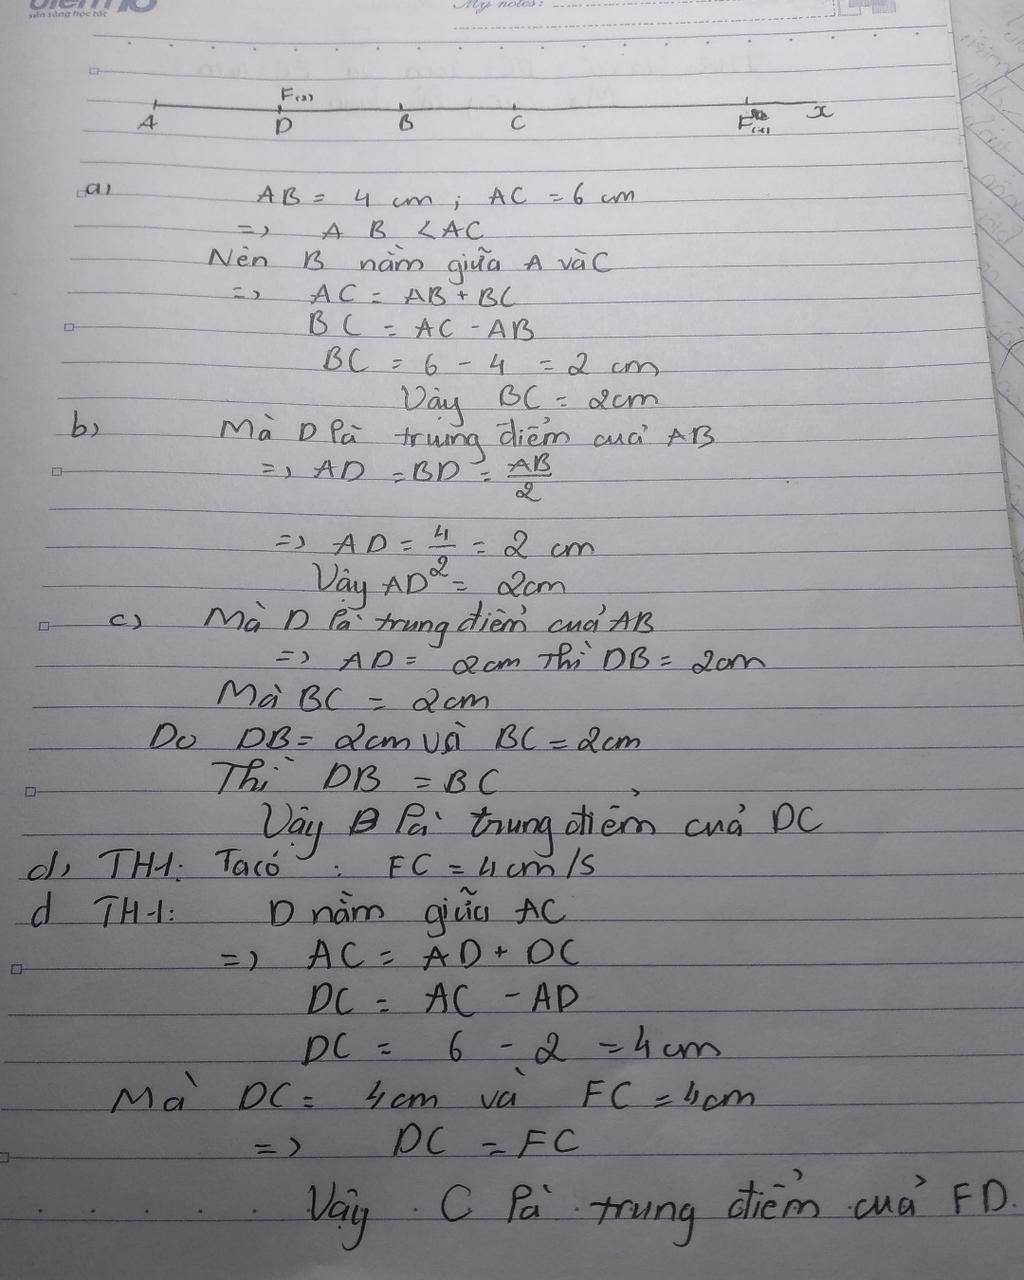 điểm 10
sẵn sàng học tốt
My notes:
F(2)
A D B C F(1) x
a) AB = 4 cm ; AC = 6 cm
=> AB < AC
Nên B nằm giữa A và C
=> AC = AB + BC
BC = AC - AB
BC = 6 - 4 = 2 cm
Vậy BC = 2cm
b) Mà D là trung điểm cuả AB
=> AD = BD = AB/2
=> AD = 4/2 = 2 cm
Vậy AD = 2cm
c) Mà D là trung điểm cuả AB
=> AD = 2cm thì DB = 2cm
Mà BC = 2cm
Do DB = 2cm và BC = 2cm
Thì DB = BC
Vậy B là trung điểm cuả DC
d) TH1: Ta có : FC = 4cm/S
d TH1: D nằm giữa AC
=> AC = AD + DC
DC = AC - AD
DC = 6 - 2 = 4cm
Mà DC = 4cm và FC = 4cm
=> DC = FC
Vậy C là trung điểm cuả FD.